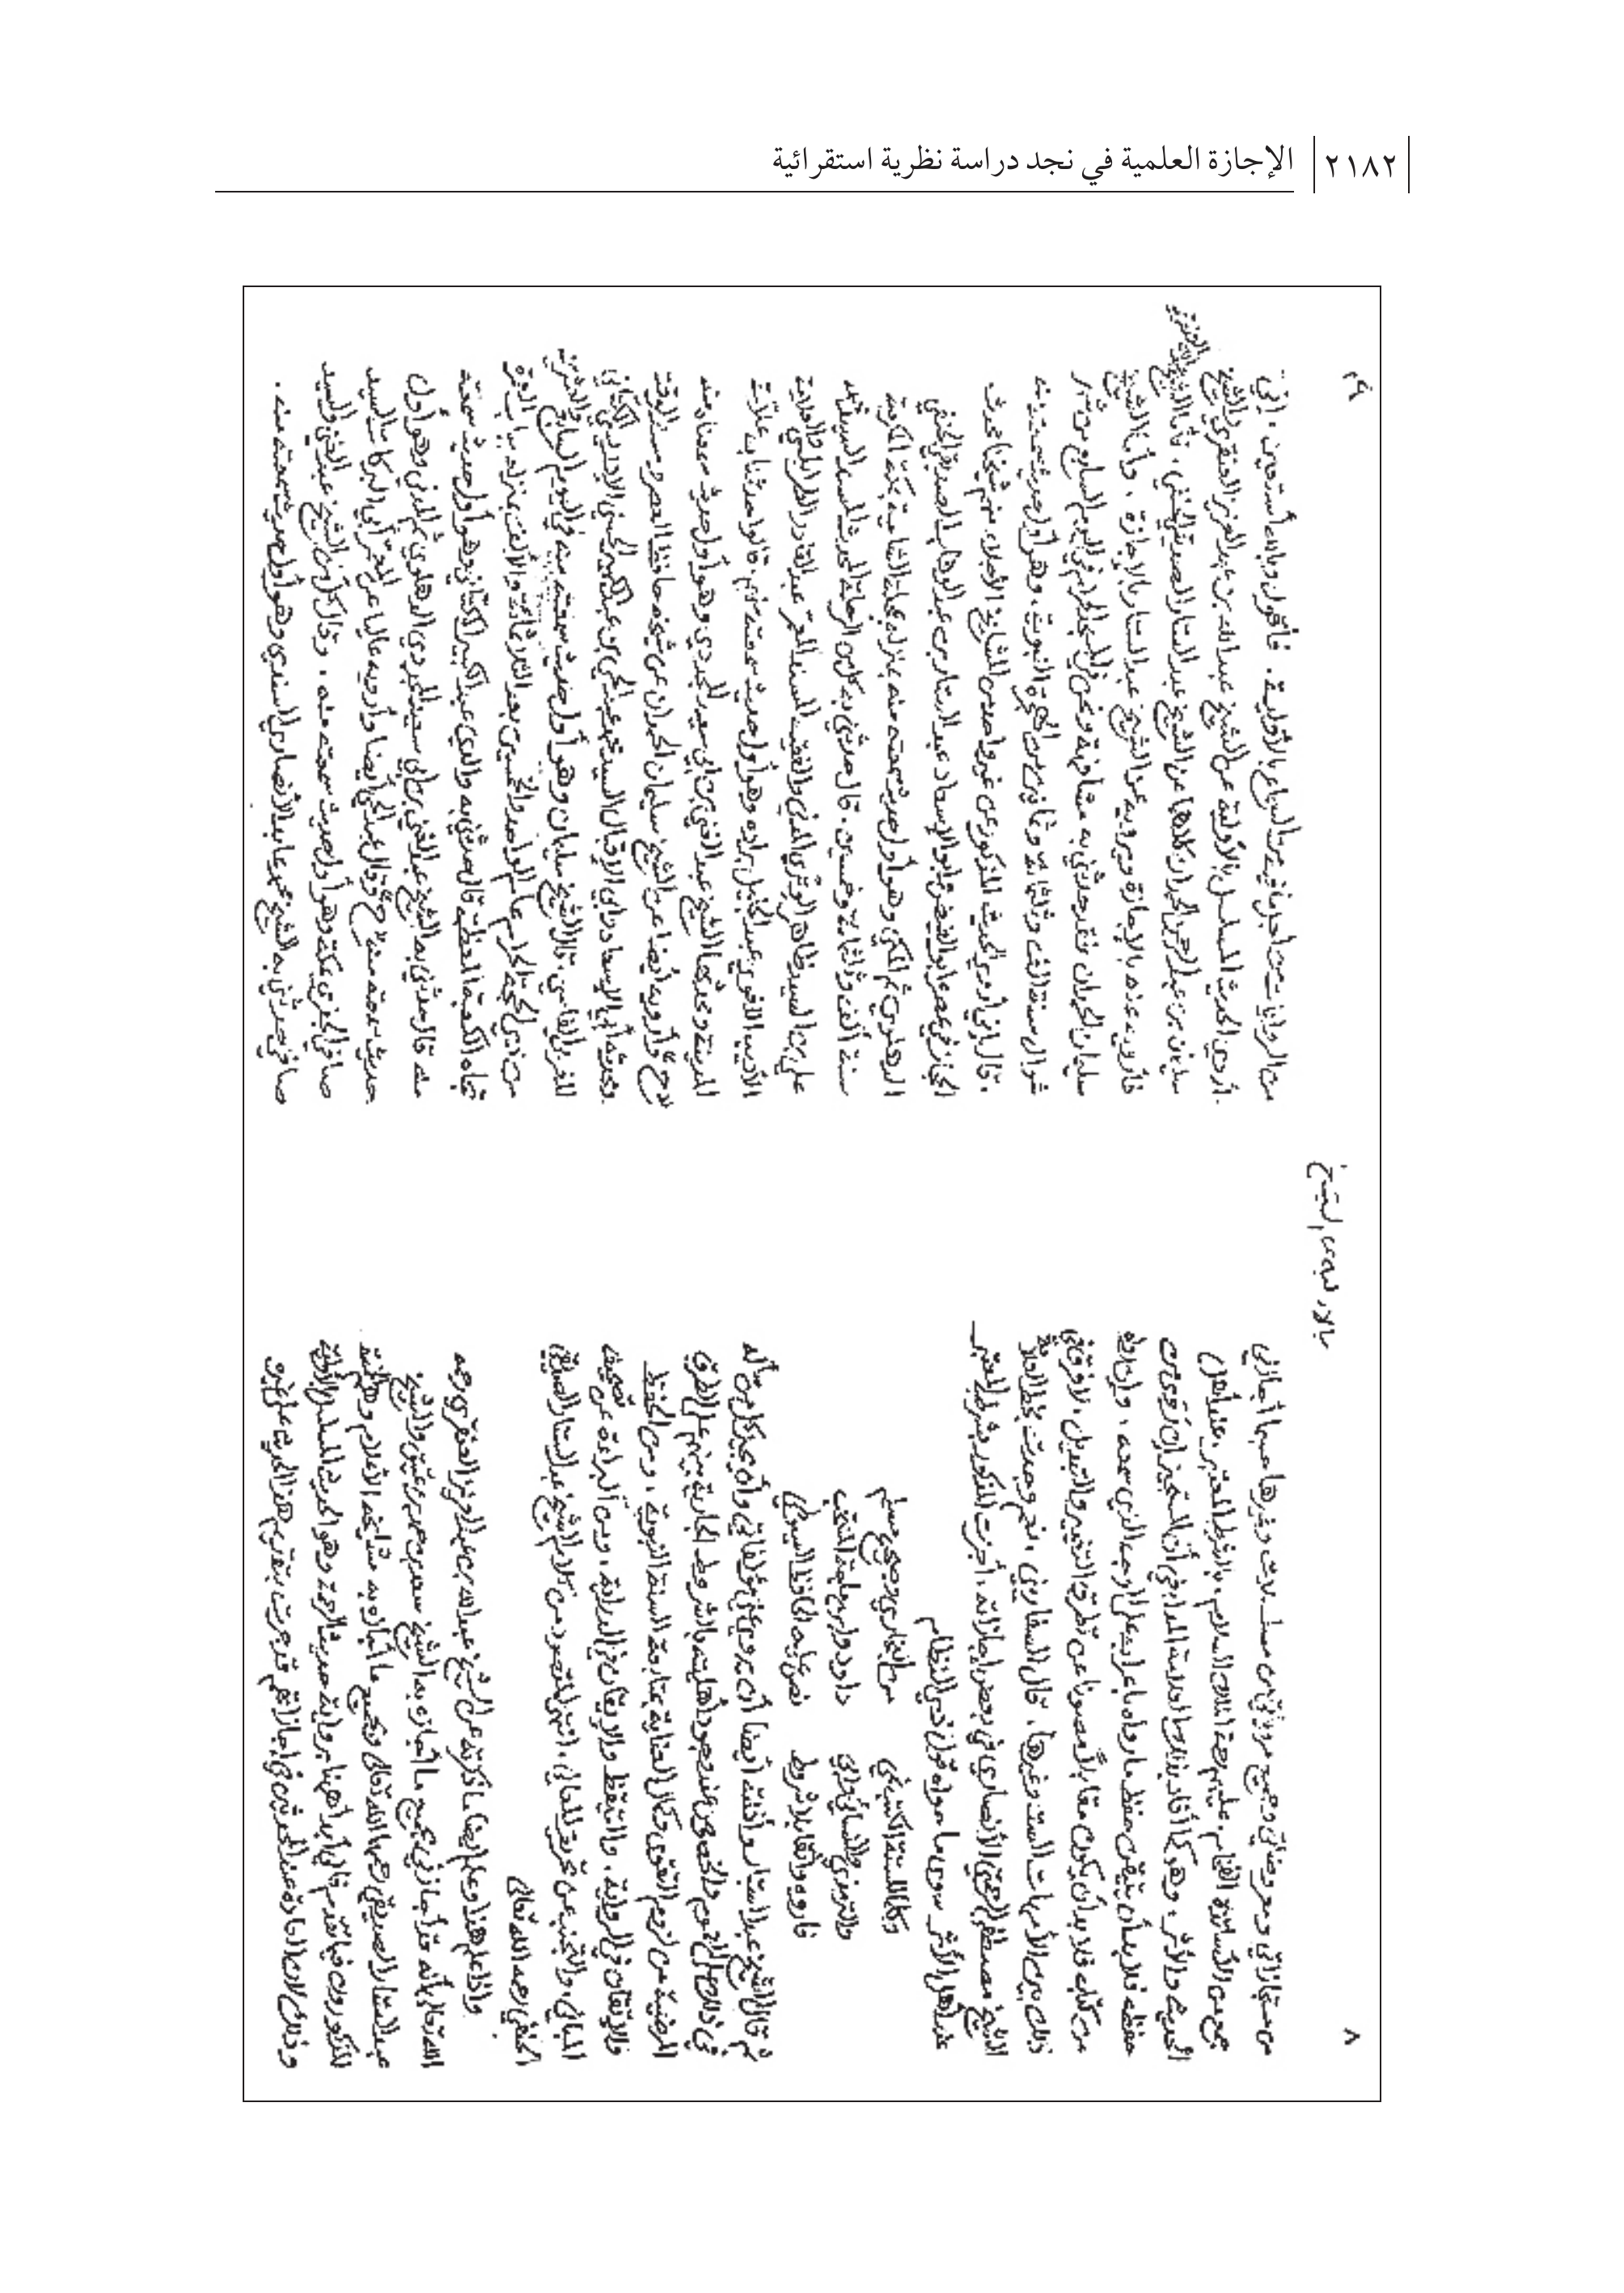 ٢١٨٢ الإجازة العلمية في نجد دراسة نظرية استقرائية
٨
من مستجازاتي ومعروضاتي وجميع مروياتي من مسلسلات وغيرها حسبما أجازني
جمع من الأساتذة الفخام . عليهم رحمة الملك السلام . بالشرط المعتبر . عند أهل
الحديث والأثر . وهو كما أفاد بعض المدابغي أن المستجيز إن روى من
حفظه فلا بد أن يتيقن حفظ ما رواه بإعرابه على الوجه الذي سمعه . وإن رواه
من كتاب فلا بد أن يكون مقابلاً مصونا عن تطرق التغيير والتبديل . لا فرق في
ذلك بين الأمهات الست وغيرها . قال السفاريني . نعم وجدت بخط العلامة
الشيخ مصطفى الأنصاري في بعض إجازاته . أجزت المذكور بشرطه المعتبر
عند أهل الأثر سوى ما حواه قول ذي النظام
من البخاري وصحيح مسلم
والترمذي والنسائي وأبي داود وابن ماجة المنتخب
فاروه وانقل بلا شروط نص عليه الحافظ السيوطي
ثم قال الشيخ عبد الستار وأذنت له أيضا أن يروي عني مؤلفاتي وأن يجيز كل من سأله
في ذلك على العموم والخصوص عند وجود أهليته بالشروط الجارية بينهم على الطريق
المرضية من لزوم التقوى وكمال العناية بمتابعة السنة النبوية . ومن الحفظ
والإتقان في الرواية . والتيقظ والإيقان في الدراية . ومن البراءة عن تصحيف
المباني . والتجنب عن تحريف المعاني . انتهى المقصود من كلام الشيخ عبد الستار الصديقي
الحنفي رحمه الله تعالى
واذا علم هذا وعلم أيضا ما ذكرته عن الشيخ عبد الله بن عبد العزيز العنقري رحمه
الله تعالى بأنه قد أجازني بجميع ما أجازه به الشيخ سعد بن حمد بن عتيق والشيخ
عبد الستار الصديقي رحمهما الله تعالى وبجميع ما أجازه به مشايخه الأعلام وهم الستة
المذكورون فيما تقدم فإني أبدأ هنا برواية حديث الرحمة وهو الحديث المسلسل بالأولية
وذلك لأن العادة عند المحدثين في إجازاتهم قد جرت بتقديم هذا الحديث على غيره
٩
من الروايات من أجل ما فيه من السماع بالأولية . فأقول وبالله أستعين . إني
أروي الحديث المسلسل بالأولية عن الشيخ عبد الله بن عبد العزيز العنقري والشيخ
سليمان بن عبد الرحمن الحمدان كلاهما عن الشيخ عبد الستار الصديقي الحنفي . فأما الشيخ عبد الله بن عبد العزيز
فأرويه عنه بالإجازة ويرويه عن الشيخ عبد الستار بالإجازة . وأما الشيخ
سليمان الحمدان فقد حدثني به مشافهة ونحن في المسجد الحرام في اليوم السابع من شهر
شوال سنة ألف وثلثمائة وثمانين من الهجرة النبوية . وهو أول حديث سمعته منه
. قال إني أروي الحديث المذكور عن غير واحد من المشايخ الأجلاء منهم شيخنا محدث
الحجاز في عصره أبو الفيض وأبو الإسعاد عبد الستار بن عبد الوهاب الصديقي الحنفي
الدهلوي ثم المكي وهو أول حديث سمعته منه بمنزله بمحلة الشامية بمكة المكرمة
سنة ألف وثلثمائة وخمسين . قال حدثني به كل من الرحلة المحدث المسند السيد محمد
علي بن السيد ظاهر الوتري المدني والفقيه المسند المعمر عبد القادر الطرابلسي والعلامة
الأديب اللغوي عبد الجليل براده وهو أول حديث سمعته منهم . قالوا حدثنا به علامة
المدينة ومحدثها الشيخ عبد الغني بن أبي سعيد المجددي وهو أول حديث سمعناه منه
ح وأرويه أيضا عن الشيخ سليمان الحمدان عن شيخه حافظ العصر ومسند الوقت
ومحدثه أبي الإسعاد وأبي الإقبال السيد محمد عبد الحي بن عبد الكبير الحسني الإدريسي الكتاني
المغربي الفاسي . قال الشيخ سليمان وهو أول حديث سمعته منه في اليوم السابع والعشرين
من ذي الحجة الحرام عام الواحد والخمسين بعد الثلاثمائة والألف بمنزله بباب العمرة
تجاه الكعبة المعظمة قال حدثني به والدي عبد الكبير الكتاني وهو أول حديث سمعته
منه قال حدثني به الشيخ عبد الغني بن أبي سعيد المجددي الدهلوي ثم المدني وهو أول
حديث سمعته منه ح وقال عبد الحي أيضا وأرويه عاليا عن المعمر أبي البركات السيد
صافي الجفري بمكة وهو أول حديث سمعته منه . وقال كل من الشيخ عبد الغني والسيد
صافي حدثني به الشيخ محمد عابد الأنصاري السندي وهو أول حديث سمعته منه .